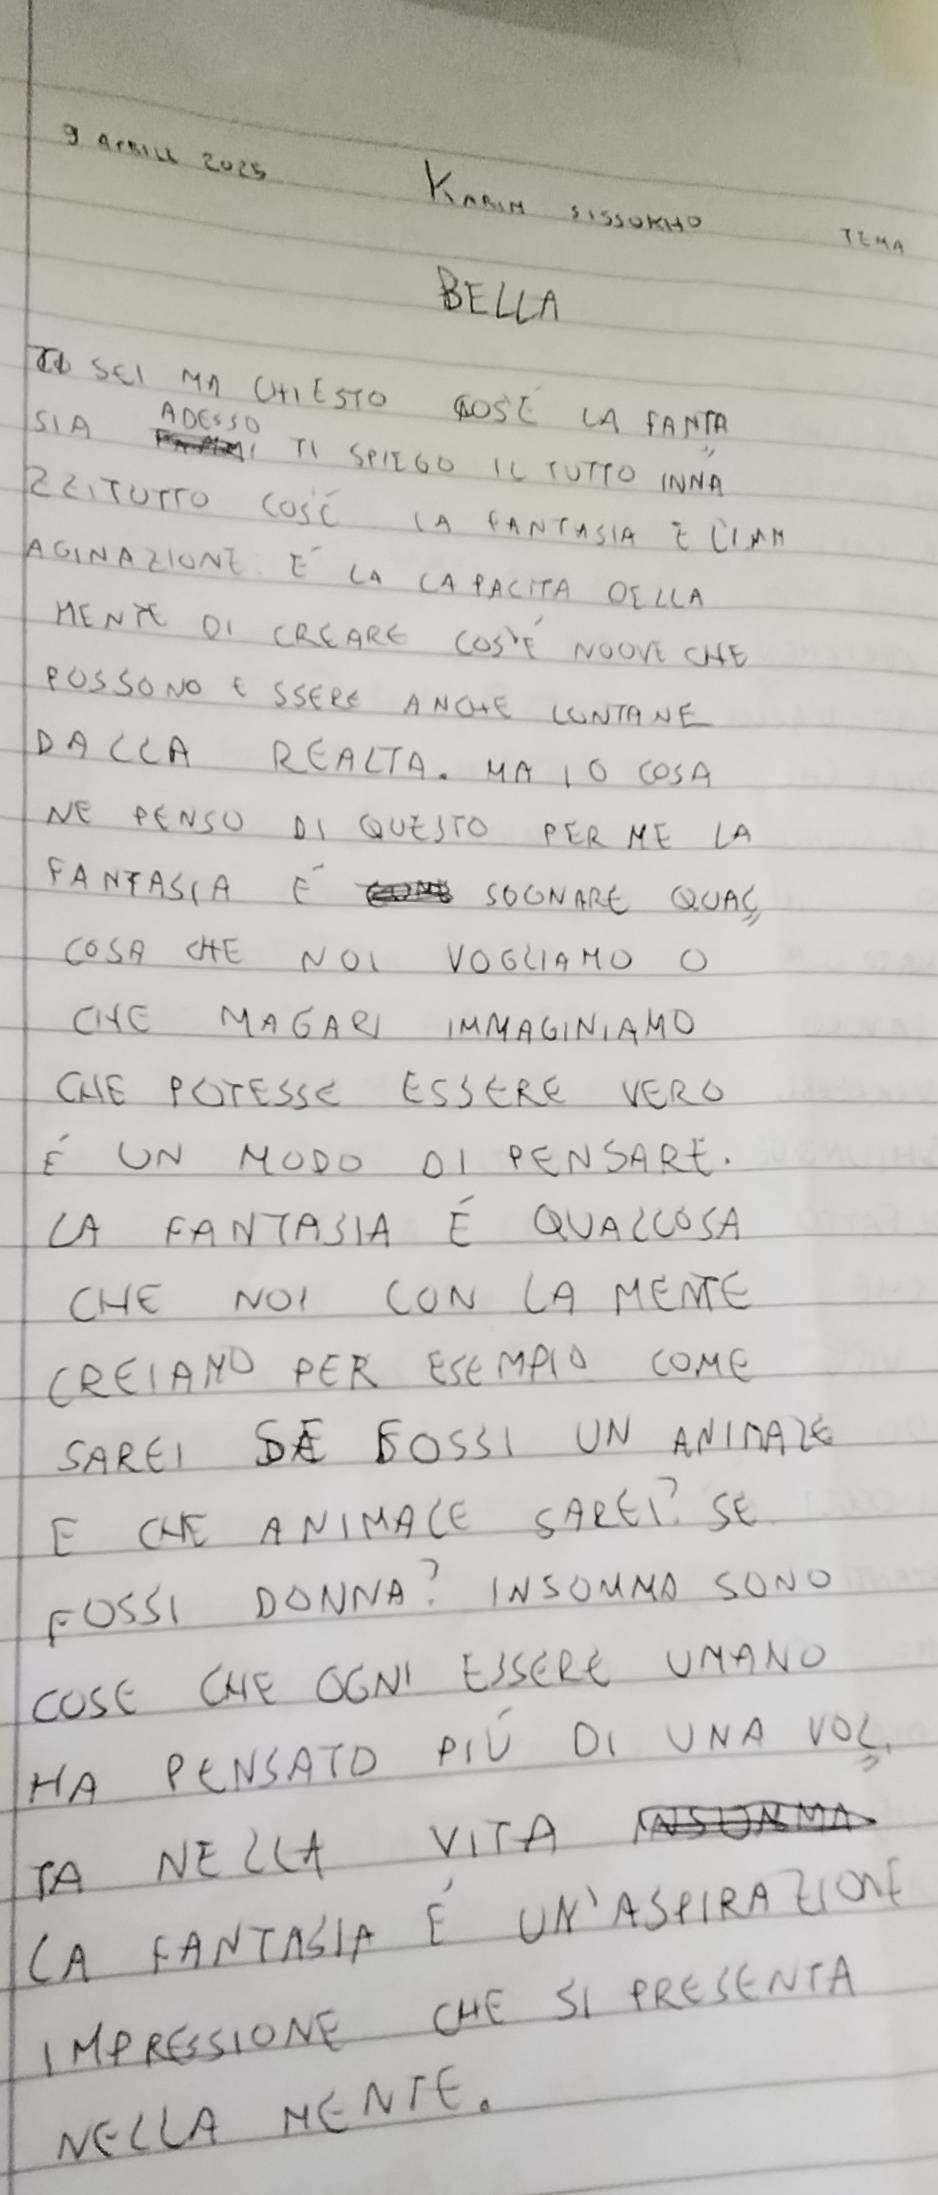 9 APRILE 2025 KARIM SISSOKHO TEMA
BELLA
TI SEI MA CHIESTO COSÉ LA FANTA
SIA ADESSO TI SPIEGO IL TUTTO INNA
ZZITUTTO COS'É LA FANTASIA É L'IMM
AGINAZIONE É LA CAPACITA DELLA
MENTE DI CREARE COS'É NUOVE CHE
POSSONO ESSERE ANCHE LONTANE
DALLA REALTA. MA IO COSA
NE PENSO DI QUESTO PER ME LA
FANTASIA É SOGNARE QUAL
COSA CHE NOI VOGLIAMO O
CHE MAGARI IMMAGINIAMO
CHE POTESSE ESSERE VERO
É UN MODO DI PENSARE.
LA FANTASIA É QUALCOSA
CHE NOI CON LA MENTE
CREIAMO PER ESEMPIO COME
SAREI SE FOSSI UN ANIMALE
E CHE ANIMALE SAREI? SE
FOSSI DONNA? INSOMMA SONO
COSE CHE OGNI ESSERE UMANO
HA PENSATO PIÚ DI UNA VOL
TA NELLA VITA
LA FANTASIA É UN'ASPIRAZIONE
IMPRESSIONE CHE SI PRESENTA
NELLA MENTE.